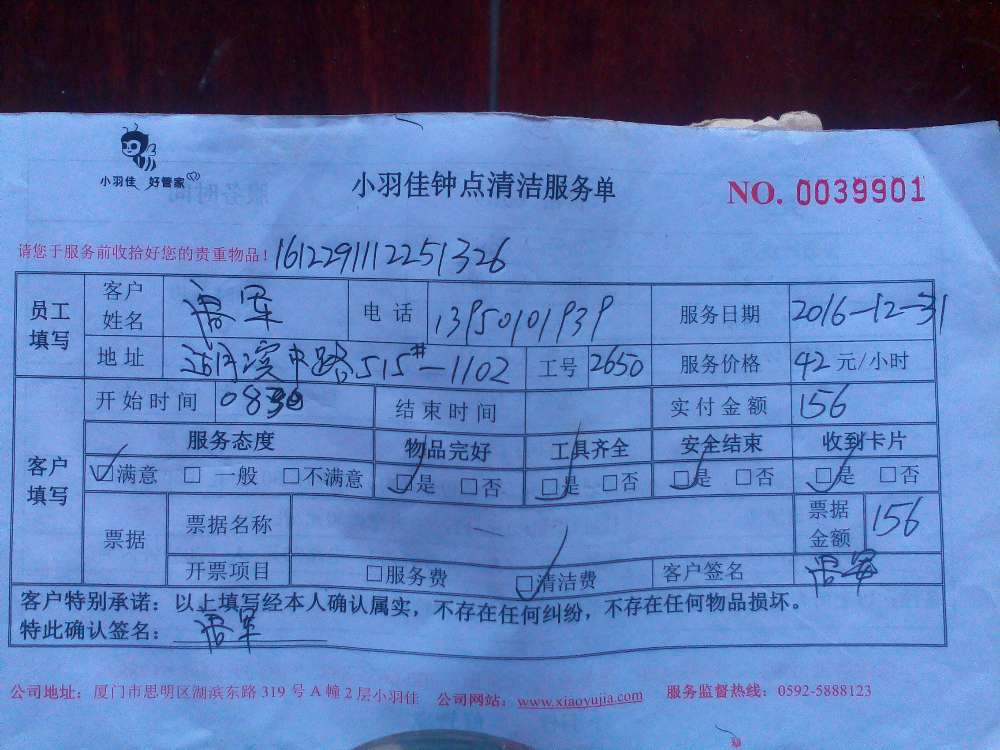 小羽佳 好管家
小羽佳钟点清洁服务单
NO. 0039901
请您于服务前收拾好您的贵重物品! 1612291112251326
员工填写 客户姓名 电话 13950101939 服务日期 2016-12-31
地址 湖滨中路515#-1102 工号 2650 服务价格 42 元/小时
客户填写 开始时间 0830 结束时间 实付金额 156
服务态度 物品完好 工具齐全 安全结束 收到卡片
☑满意 □一般 □不满意 ☑是 □否 ☑是 □否 ☑是 □否 ☑是 □否
票据 票据名称 票据金额 156
开票项目 □服务费 ☑清洁费 客户签名
客户特别承诺:以上填写经本人确认属实,不存在任何纠纷,不存在任何物品损坏。
特此确认签名:
公司地址:厦门市思明区湖滨东路 319 号 A 幢 2 层小羽佳 公司网站:www.xiaoyujia.com 服务监督热线:0592-5888123